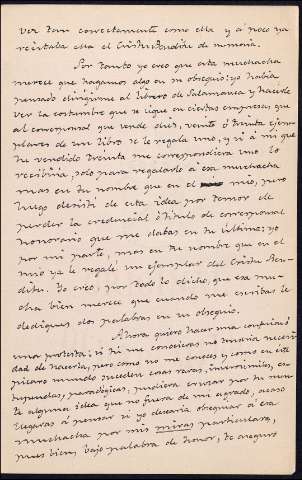 ver tan correctamente como ella y á poco ya
recitaba ella el Cristu Benditu de memoria.
Por tanto yo creo que esta muchacha
merece que hagamos algo en su obsequio: yo había
pensado dirigirme al librero de Salamanca y hacerle
ver la costumbre que se sigue en ciertas empresas, que
al corresponsal que vende diez, veinte ó treinta ejem-
plares de un libro se le regala uno, y si á mi que
he vendido treinta me correspondiera uno lo
recibiría, solo para regalarlo á esa muchacha
mas en tu nombre que en el mio, pero
luego desistí de esta idea por temor de
perder la credencial ó título de corresponsal
honorario que me dabas en tu última; yo
por mi parte, mas en tu nombre que en el
mio ya le regalé un ejemplar del Cristu Ben-
ditu. Yo creo, por todo lo dicho, que esa mu-
chacha bien merece que cuando me escribas le
dediques dos palabras en su obsequio.
Ahora quiero hacer una
protesta; si tú me conocieras no tendría necesi-
dad de hacerla, pero como no me conoces y como en este
picaro mundo suceden cosas raras, inverosímiles,
estupendas, paradógicas, pudiera cruzar por tu men-
te alguna idea que no fuera de mi agrado, acaso
llegaras á pensar si yo desearía obsequiar á esa
muchacha por mis miras particulares,
pues bien, bajo palabra de honor, te aseguro